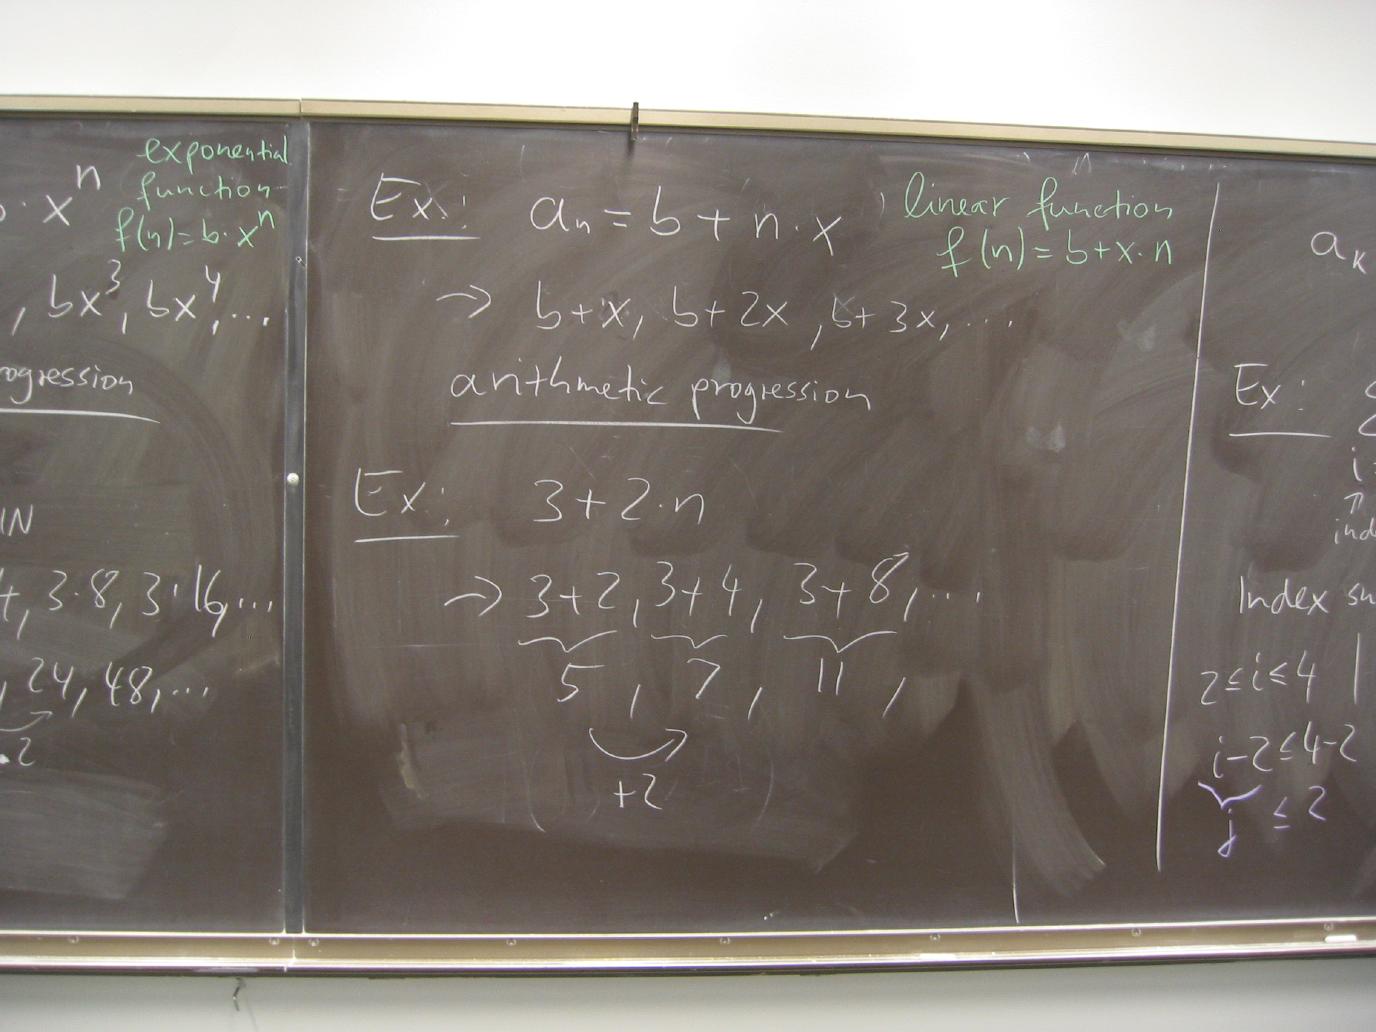 exponential
function
f(n)=b·x^n
· x^n
, bx^3, bx^4, ...
IN
, 3·8, 3·16, ...
, 24, 48, ...
·2
Ex: a_n = b + n·x
linear function
f(n) = b+x·n
→ b+x, b+2x, b+3x, ...
arithmetic progression
Ex: 3+2·n
→ 3+2, 3+4, 3+8, ...
5, 7, 11,
+2
a_k
Ex:
i
↑
Index
2≤i≤4 |
i-2≤4-2
j ≤ 2